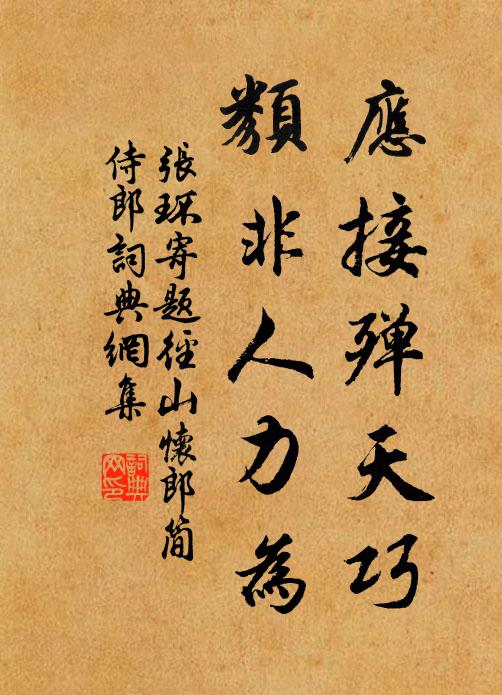 應接殫天巧
類非人力為
張環寄題徑山懷郎簡
侍郎詞典網集
詞典
网印